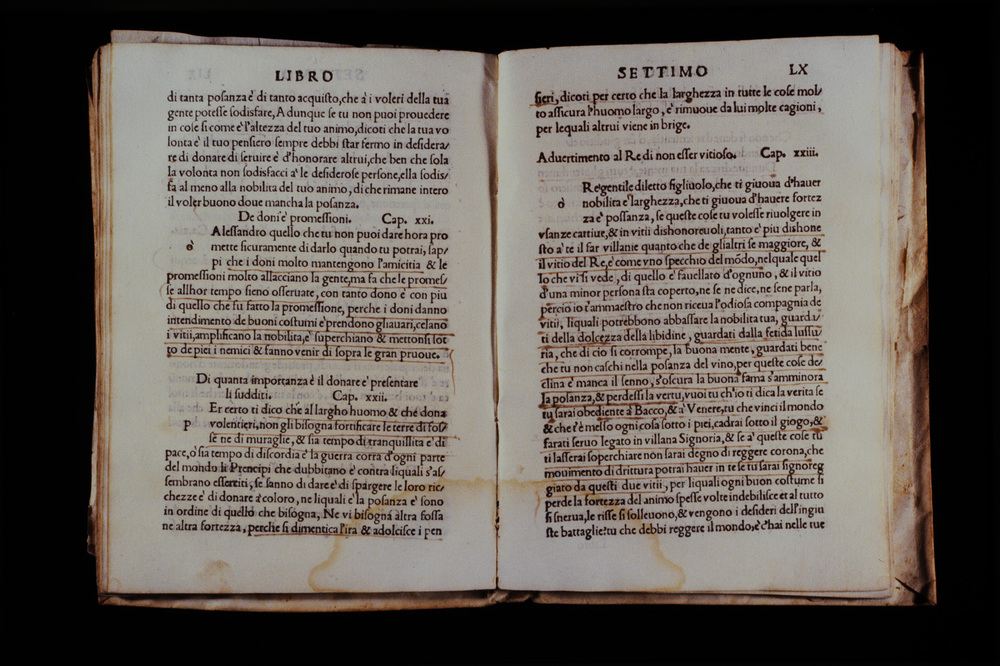 LIBRO
di tanta posanza è di tanto acquisto, che à i voleri della tua
gente potesse sodisfare, Adunque se tu non puoi prouedere
in cose si come è l'altezza del tuo animo, dicoti che la tua vo
lonta è il tuo pensiero sempre debbi star fermo in desidera/
re di donare di seruire è d'honorare altrui, che ben che sola
la volonta non sodisfacci à le desiderose persone, ella sodis/
fa al meno alla nobilita del tuo animo, di che rimane intero
il voler buono doue mancha la posanza.
De doni è promessioni. Cap. xxi.
Alessandro quello che tu non puoi dare hora pro
ò mette sicuramente di darlo quando tu potrai, sap/
pi che i doni molto mantengono l'amicitia & le
promessioni molto allacciano la gente, ma fa che le promes/
se allhor tempo sieno osseruate, con tanto dono è con piu
di quello che fu fatto la promessione, perche i doni danno
intendimento de buoni costumi è prendono gliauari, celano
i vitii, amplificano la nobilita, è superchiano & mettonsi sot
to de piei i nemici & fanno venir di sopra le gran pruoue.
Di quanta importanza è il donare è presentare
li sudditi. Cap. xxii.
Er certo ti dico che al largho huomo & che dona
P volentieri, non gli bisogna fortificare le terre di fos/
se ne di muraglie, & sia tempo di tranquillita è di
pace, ò sia tempo di discordia è la guerra corta d'ogni parte
del mondo li Prencipi che dubbitano è contra liquali s'as/
sembrano esserciti, se sanno di dare è di spargere le loro ric/
chezze è di donare à coloro, ne liquali è la posanza è sono
in ordine di quello che bisogna, Ne vi bisogna altra fossa
ne altra fortezza, perche si dimentica l'ira & adolcisce i pen
SETTIMO LX
sieri, dicoti per certo che la larghezza in tutte le cose mol/
to assicura l'huomo largo, è rimuoue da lui molte cagioni,
per lequali altrui viene in brige.
Aduertimento al Re di non esser vitioso. Cap. xxiii.
Re gentile diletto figliuolo, che ti giuoua d'hauer
ò nobilita è larghezza, che ti giuoua d'hauere fortez
za è possanza, se queste cose tu volesse riuolgere in
vsanze cattiue, & in vitii dishonoreuoli, tanto è piu dishone
sto à te il far villanie quanto che de glialtri se maggiore, &
il vitio del Re, è come vno specchio del mōdo, nelquale quel
lo che vi si vede, di quello è fauellato d'ognuno, & il vitio
d'una minor persona sta coperto, ne se ne dice, ne sene parla,
percio io t'ammaestro che non riceua l'odiosa compagnia de
vitii, liquali potrebbono abbassare la nobilita tua, guarda/
ti della dolcezza della libidine, guardati dalla fetida lussu/
ria, che di cio si corrompe, la buona mente, guardati bene
che tu non caschi nella posanza del vino, per queste cose de/
clina è manca il senno, s'oscura la buona fama s'amminora
la posanza, & perdesi la vertu, vuoi tu ch'io ti dica la verita se
tu sarai obediente à Bacco, & à Venere, tu che vinci il mondo
& che t'è messo ogni cosa sotto i piei, cadrai sotto il giogo, &
farati seruo legato in villana Signoria, & se à queste cose tu
ti lasserai soperchiare non sarai degno di reggere corona, che
mouimento di drittura potrai hauer in te se tu sarai signoreg
giato da questi due vitii, per liquali ogni buon costume si
perde la fortezza del animo spesse volte indebilisce et al tutto
si snerua, le risse si solleuono, & vengono i desideri dell'ingiu
ste battaglie: tu che debbi reggere il mondo, è c'hai nelle tue